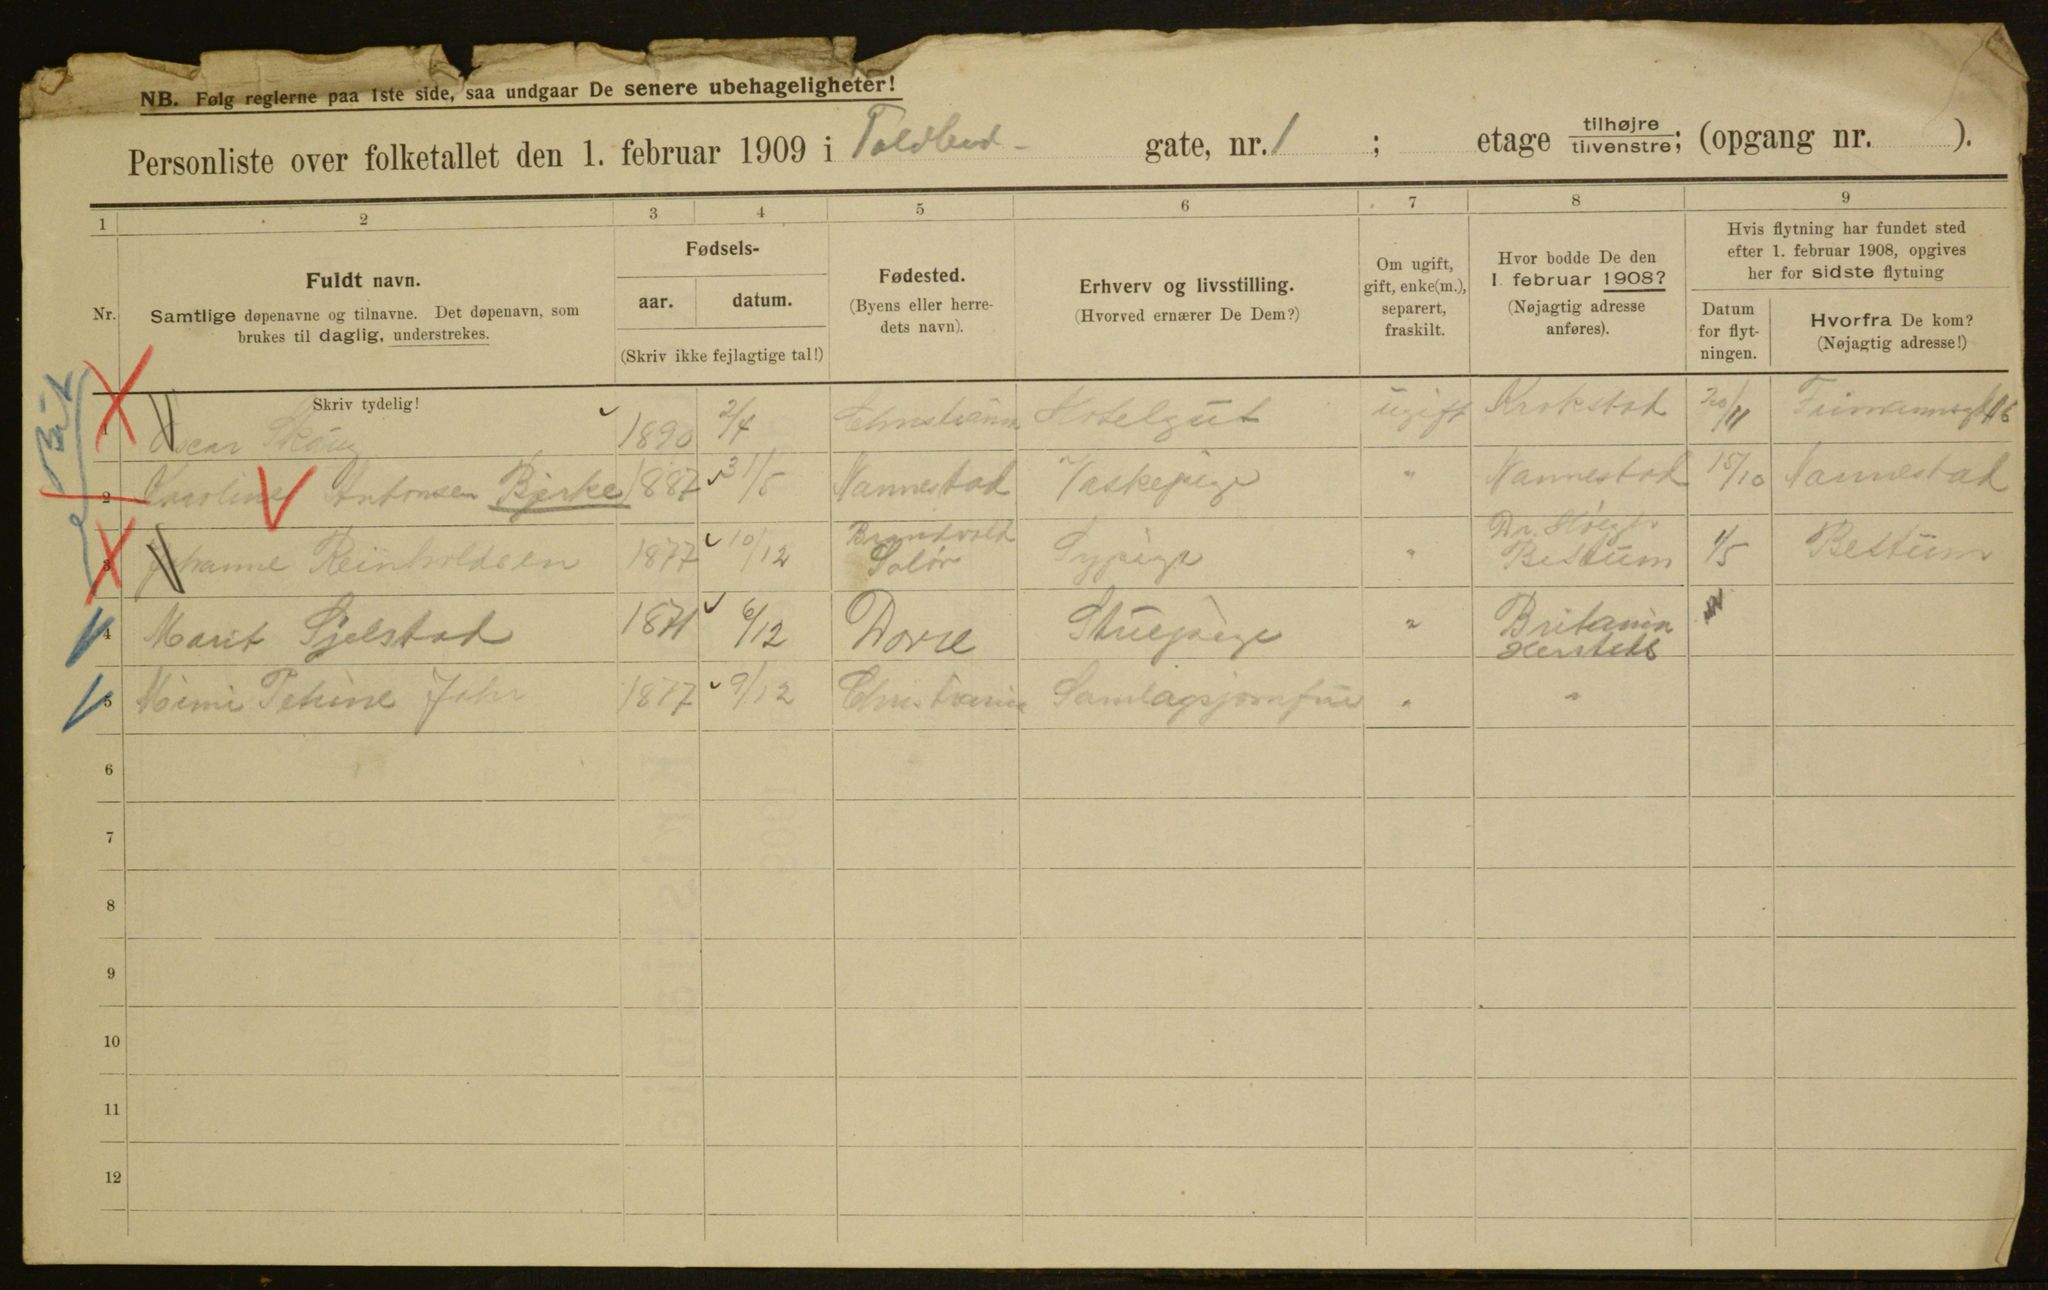 NB. Følg reglerne paa 1ste side, saa undgaar De senere ubehageligheter!
Personliste over folketallet den 1. februar 1909 i Toldbod- gate, nr. 1 ; etage tilhøjre tilvenstre; (opgang nr. ).
1 2 3 4 5 6 7 8 9
Nr.
Fuldt navn.
Samtlige døpenavne og tilnavne. Det døpenavn, som
brukes til daglig, understrekes.
Skriv tydelig!
Fødsels-
aar. datum.
(Skriv ikke fejlagtige tal!)
Fødested.
(Byens eller herre-
dets navn).
Erhverv og livsstilling.
(Hvorved ernærer De Dem?)
Om ugift,
gift, enke(m.),
separert,
fraskilt.
Hvor bodde De den
1. februar 1908?
(Nøjagtig adresse
anføres).
Hvis flytning har fundet sted
efter 1. februar 1908, opgives
her for sidste flytning
Datum
for flyt-
ningen.
Hvorfra De kom?
(Nøjagtig adresse!)
1 Oscar Skaug 1890 2/4 Christiania Hotelgut ugift Krokstad 20/11
2 Karoline Antonsen Bjerke 1887 31/5 Nannestad Vaskepige " Nannestad 15/10 Nannestad
3 Johanne Reinholdsen 1877 10/12 Brandvold Solør Sypige " Bestum 1/5 Bestum
4 Marit Sjelstad 1871 6/12 Dovre Stuepige " Britania
5 Mimi Petrine Jahr 1877 9/12 Christiania Samlagsjomfru " "
6
7
8
9
10
11
12